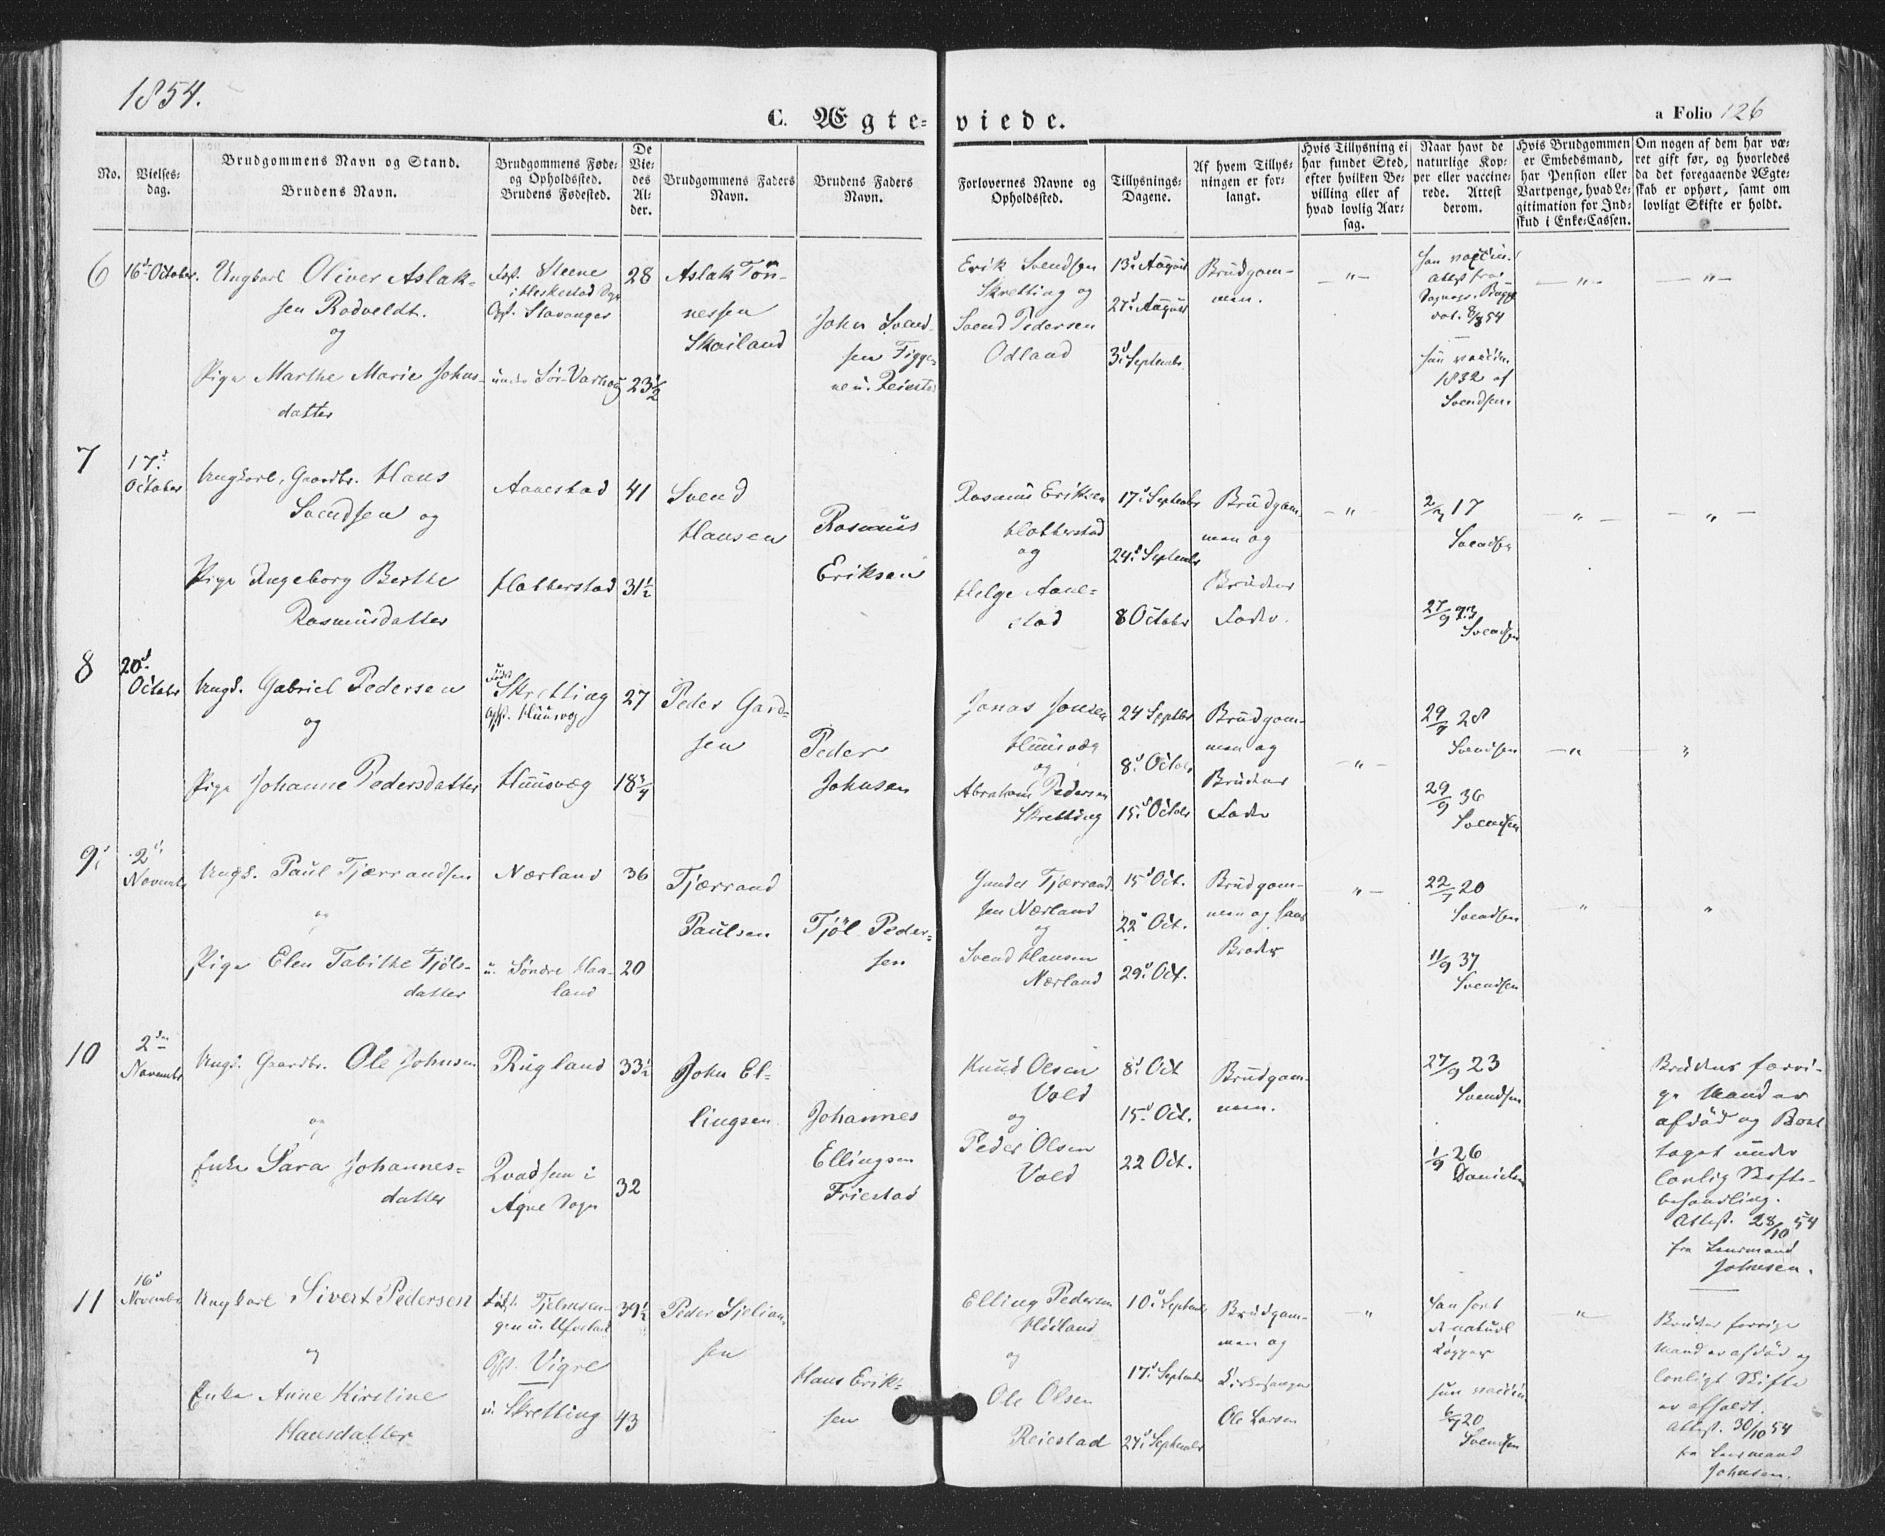 1854.
C. Ægteviede.
a Folio 126
No.
Vielsesdag.
Brudgommens Navn og Stand.
Brudens Navn.
Brudgommens Føde- og Opholdssted.
Brudens Fødested.
De Viedes Alder.
Brudgommens Faders Navn.
Brudens Faders Navn.
Forlovernes Navne og Opholdssted.
Tillysnings-Dagene.
Af hvem Tillysningen er forlangt.
Hvis Tillysning ei har fundet Sted, efter hvilken Bevilling eller af hvad lovlig Aarsag.
Naar havt de naturlige Kopper eller vaccinerede. Attest derom.
Hvis Brudgommen er Embedsmand, har Pension eller Vartpenge, hvad Legitimation for Indskud i Enke-Cassen.
Om nogen af dem har været gift før, og hvorledes da det foregaaende Ægteskab er ophørt, samt om lovligt Skifte er holdt.
6
16d October.
Ungkarl Oliver Aslaksen Rodveldt.
og
Pige Marthe Marie Johnsdatter
Fød. Steene i Heskestad Sogn
Opst. Stavanger
under Sör-Varhoug
28
23½
Aslak Tönnessen Skailand
John Svendsen
Erik Svendsen Skretting og
Svend Pedersen Odland
13d August
27d August
3d September
Brudgommen.
1832 af Svendsen.
7
17d October
Ungkarl, Gaardbr. Hans Svendsen og
Pige Ingeborg Berthe Rasmusdatter
Aanestad
Hobberstad
41
31½
Svend Hansen
Rasmus Eriksen
Rasmus Eriksen Hobberstad
og
Helge Aanestad
17d September
24d September
8 October
Brudgommen og Brudens Fader.
17
Svendsen
27/9 23
Svendsen
8
20d October
Ungk. Gabriel Pedersen
og
Pige Johanne Pedersdatter
Föd. Skretting
Opst. Huusvæg
Huusvæg
27
18¾
Peder Gardsen
Peder Johnsen
Jonas Jonsen Huusvæg
og
Abraham Pedersen Skretting
24 Septbr
8d October
15d October
Brudgommen og Brudens Fader
28
Svendsen
29/9 36
Svendsen
9
2d November
Ungk. Paul Tjærrandsen
og
Pige Elen Tabithe Tjölsdatter
Nærland
u. Söndre Haaland
36
20
Tjærrand Paulsen
Tjöl Pedersen
Gunder Tjærrandsen Nærland
og
Svend Hansen Nærland
15d Oct.
22d Oct.
29d Oct.
Brudgommen og hans Broder
22/7 20
Svendsen
11/9 37
Svendsen
10
2den November
Ungk. Gaardbr. Ole Johnsen
og
Enke Sara Johannesdatter
Rugland
Qvadsem i Agne Sogn
33½
32
John Ellingsen
Johannes Ellingsen Friestad
Knud Olsen Vold
og
Peder Olsen Vold
8d Oct
15d Oct.
22 Oct.
Brudgommen.
27/9 23
Svendsen
1/9 26
Danielsen
Brudens forrige Mand er afdöd og Boet taget under lovlig Skiftebehandling.
Attest. 28/10 54
fra Lensmand Johnsen.
11
16d November
Ungkarl Sivert Pedersen
og
Enke Anne Kirstine Hansdatter
Opst. Vigre
u. Skretting
39½
43
Peder Sjeliansen
Hans Eriksen
Elling Pedersen Höiland
og
Ole Olsen Reiestad
10d September
17d September
24d September
Brudgommen og Kirkesanger Ole Larsen
han havt de naturl. Kopper
hun vaccin.
6/7 20
Svendsen
Brudens forrige Mand er afdöd og lovligt Skifte er afholdt.
Attest. 30/10 54
fra Lensmand Johnsen.